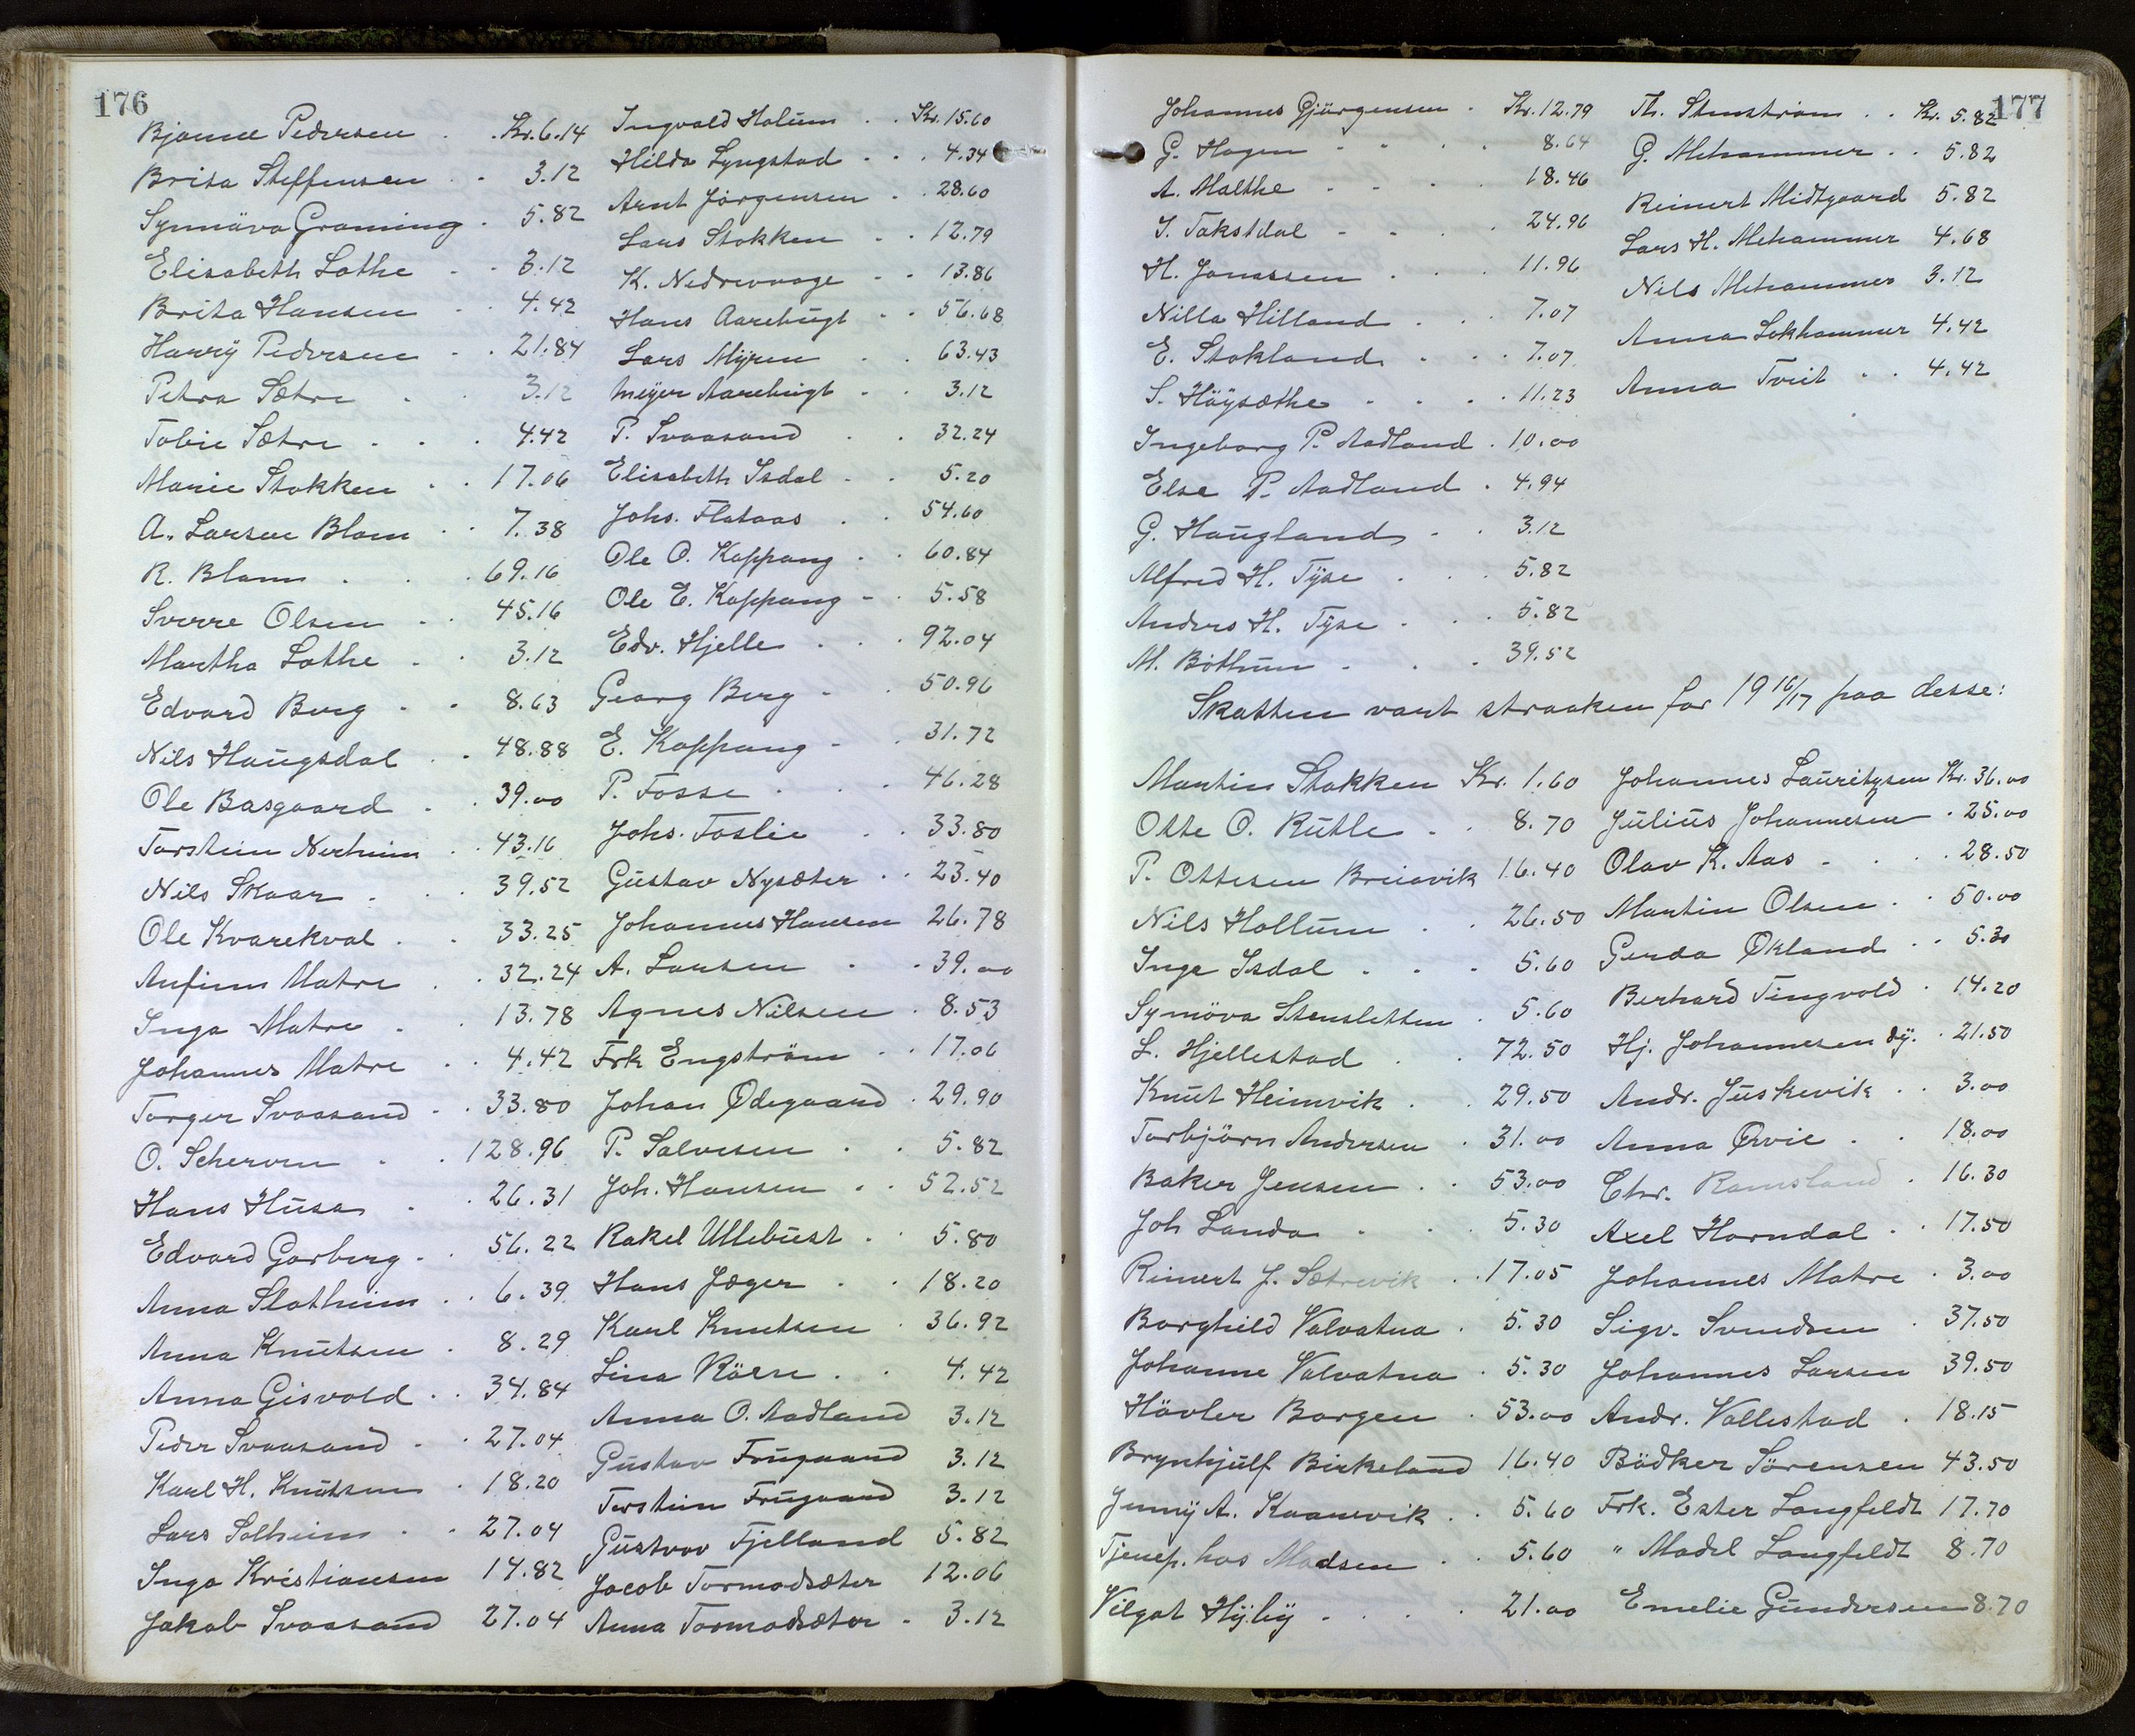 176
Bjarne Pedersen . . Kr. 6.14
Brita Steffensen . . 3.12
Synnäva Graming . 5.82
Elisabeth Lothe . . 3.12
Brita Hansen . . 4.42
Harry Pedersen . . 21.84
Petra Sætre . . 3.12
Tobie Sætre . . . 4.42
Marie Stokken . . 17.06
A. Larsen Blom . . 7.38
R. Blom . . . 69.16
Sverre Olsen . . 45.16
Martha Lothe . . 3.12
Edvard Berg . . 8.63
Nils Haugsdal . . 48.88
Ole Basgaard . . 39.00
Torstein Nerheim . . 43.16
Nils Skaar . . . 39.52
Ole Kvarekval . . 33.25
Anfinn Matre . . 32.24
Inga Matre . . 13.78
Johannes Matre . . 4.42
Torger Svaasand . . 33.80
O. Scherven . . 128.96
Hans Husa . . 26.31
Edvard Garberg . . 56.22
Anna Slotheim . . 6.39
Anna Knutsen . 8.29
Anna Gisvold . . 34.84
Peder Svaasand . . 27.04
Karl H. Knutsen . 18.20
Lars Solheim . . 27.04
Inga Kristiansen 14.82
Jakob Svaasand 27.04
Ingvald Holum . . Kr. 15.60
Hilda Lyngstad . . . 4.34
Arnt Jörgensen . . 28.60
Lars Stokken . . 12.79
K. Nedrevaage . . 13.86
Hans Aarebugt . . 56.68
Lars Myren . . 63.43
Meyer Aarebugt . . 3.12
P. Svaasand . . 32.24
Elisabeth Isdal . . 5.20
Johs. Flataas . . 54.60
Ole O. Koppang . . 60.84
Ole E. Koppang . . 5.58
Edv. Hjelle . . . 92.04
Georg Berg . . 50.96
E. Koppang . . 31.72
P. Fosse . . . 46.28
Johs. Foslie . . 33.80
Gustav Nysæter . . 23.40
Johannes Hansen 26.78
A. Larsen . . 39.00
Agnes Nilsen . 8.53
Frk Engström . . 17.06
Johan Ødegaard . 29.90
P. Salvesen . . 5.82
Joh. Hansen . . 52.52
Rakel Ullebust . . 5.80
Hans Jæger . . 18.20
Karl Knutsen . 36.92
Lina Röen . . 4.42
Anna O. Aadland 3.12
Gustav Frugaard 3.12
Torstein Frugaard 3.12
Gustvav Fjelland 5.82
Jacob Tormodsæter 12.06
Anna Tormodsæter . 3.12
177
Johannes Gjürgensen . Kr. 12.79
G. Hagen . . . . 8.64
A. Malthe . . . 18.46
I. Takstdal . . . 24.96
H. Jonassen . . . 11.96
Nilla Hilland . . . 7.07
E. Stokland . . . 7.07
S. Höysæthe . . . . 11.23
Ingeborg P. Aadland . 10.00
Else P. Aadland . 4.94
G. Haugland . . 3.12
Alfred H. Tyse . . . 5.82
Anders H. Tyse . . . 5.82
M. Böthun . . . 39.52
Th. Stenström . . Kr. 5.82
G. Mehammer . . 5.82
Reinert Midtgaard 5.82
Lars H. Mehammer 4.68
Nils Mehammer 3.12
Anna Lokhammer 4.42
Anna Tveit . . 4.42
Skatten vart straaken for 1916/17 paa desse:
Martin Stokken Kr. 1.60
Otte O. Rutle . . 8.70
P. Ottesen Breiavik 16.40
Nils Hollum . . 26.50
Inga Isdal . . . 5.60
Symöva Stensletten . 5.60
L. Hjellestad . . 72.50
Knut Heimvik . . 29.50
Torbjörn Andersen . 31.00
Baker Jensen . . 53.00
Joh Landa . . . 5.30
Reinert J. Sætrevik . . 17.05
Borghild Valvatna . 5.30
Johanne Valvatna . 5.30
Hövler Borgen . 53.00
Brynhjulf Birkeland 16.40
Jenny A. Kaarevik . . 5.60
Tjenep. hos Madsen . . 5.60
Vilgot Hyby . . . . 21.00
Johannes Lauritzsen Kr. 36.00
Julius Johannesen . 25.00
Olav K. Aas . . . 28.50
Martin Olsen . . 50.00
Gerda Økland . . 5.30
Berhard Tingvold . 14.20
Hj. Johannesen dy. . 21.50
Andr. Juskevik . . 3.00
Anna Ørvie . . 18.00
Chr. Ramsland . 16.30
Axel Horndal . . 17.50
Johannes Matre . 3.00
Sigv. Svendsen . 37.50
Johannes Larsen 39.50
Andr. Vallestad . 18.15
Bödker Sörensen 43.50
Frk. Ester Langfeldt 17.70
" Madel Langfeldt 8.70
Emelie Gundersen 8.70